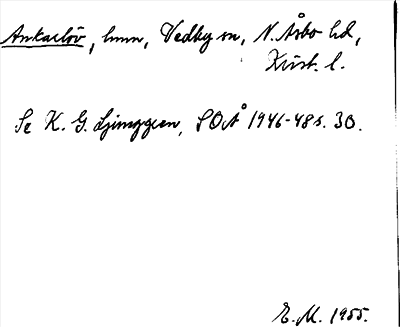 Ankarlöv, hmn, Vedby sn, N. Åsbo hd,
Krist. l.
Se K. G. Ljunggren, SOÅ 1946-48 s. 30.
E. M. 1955.